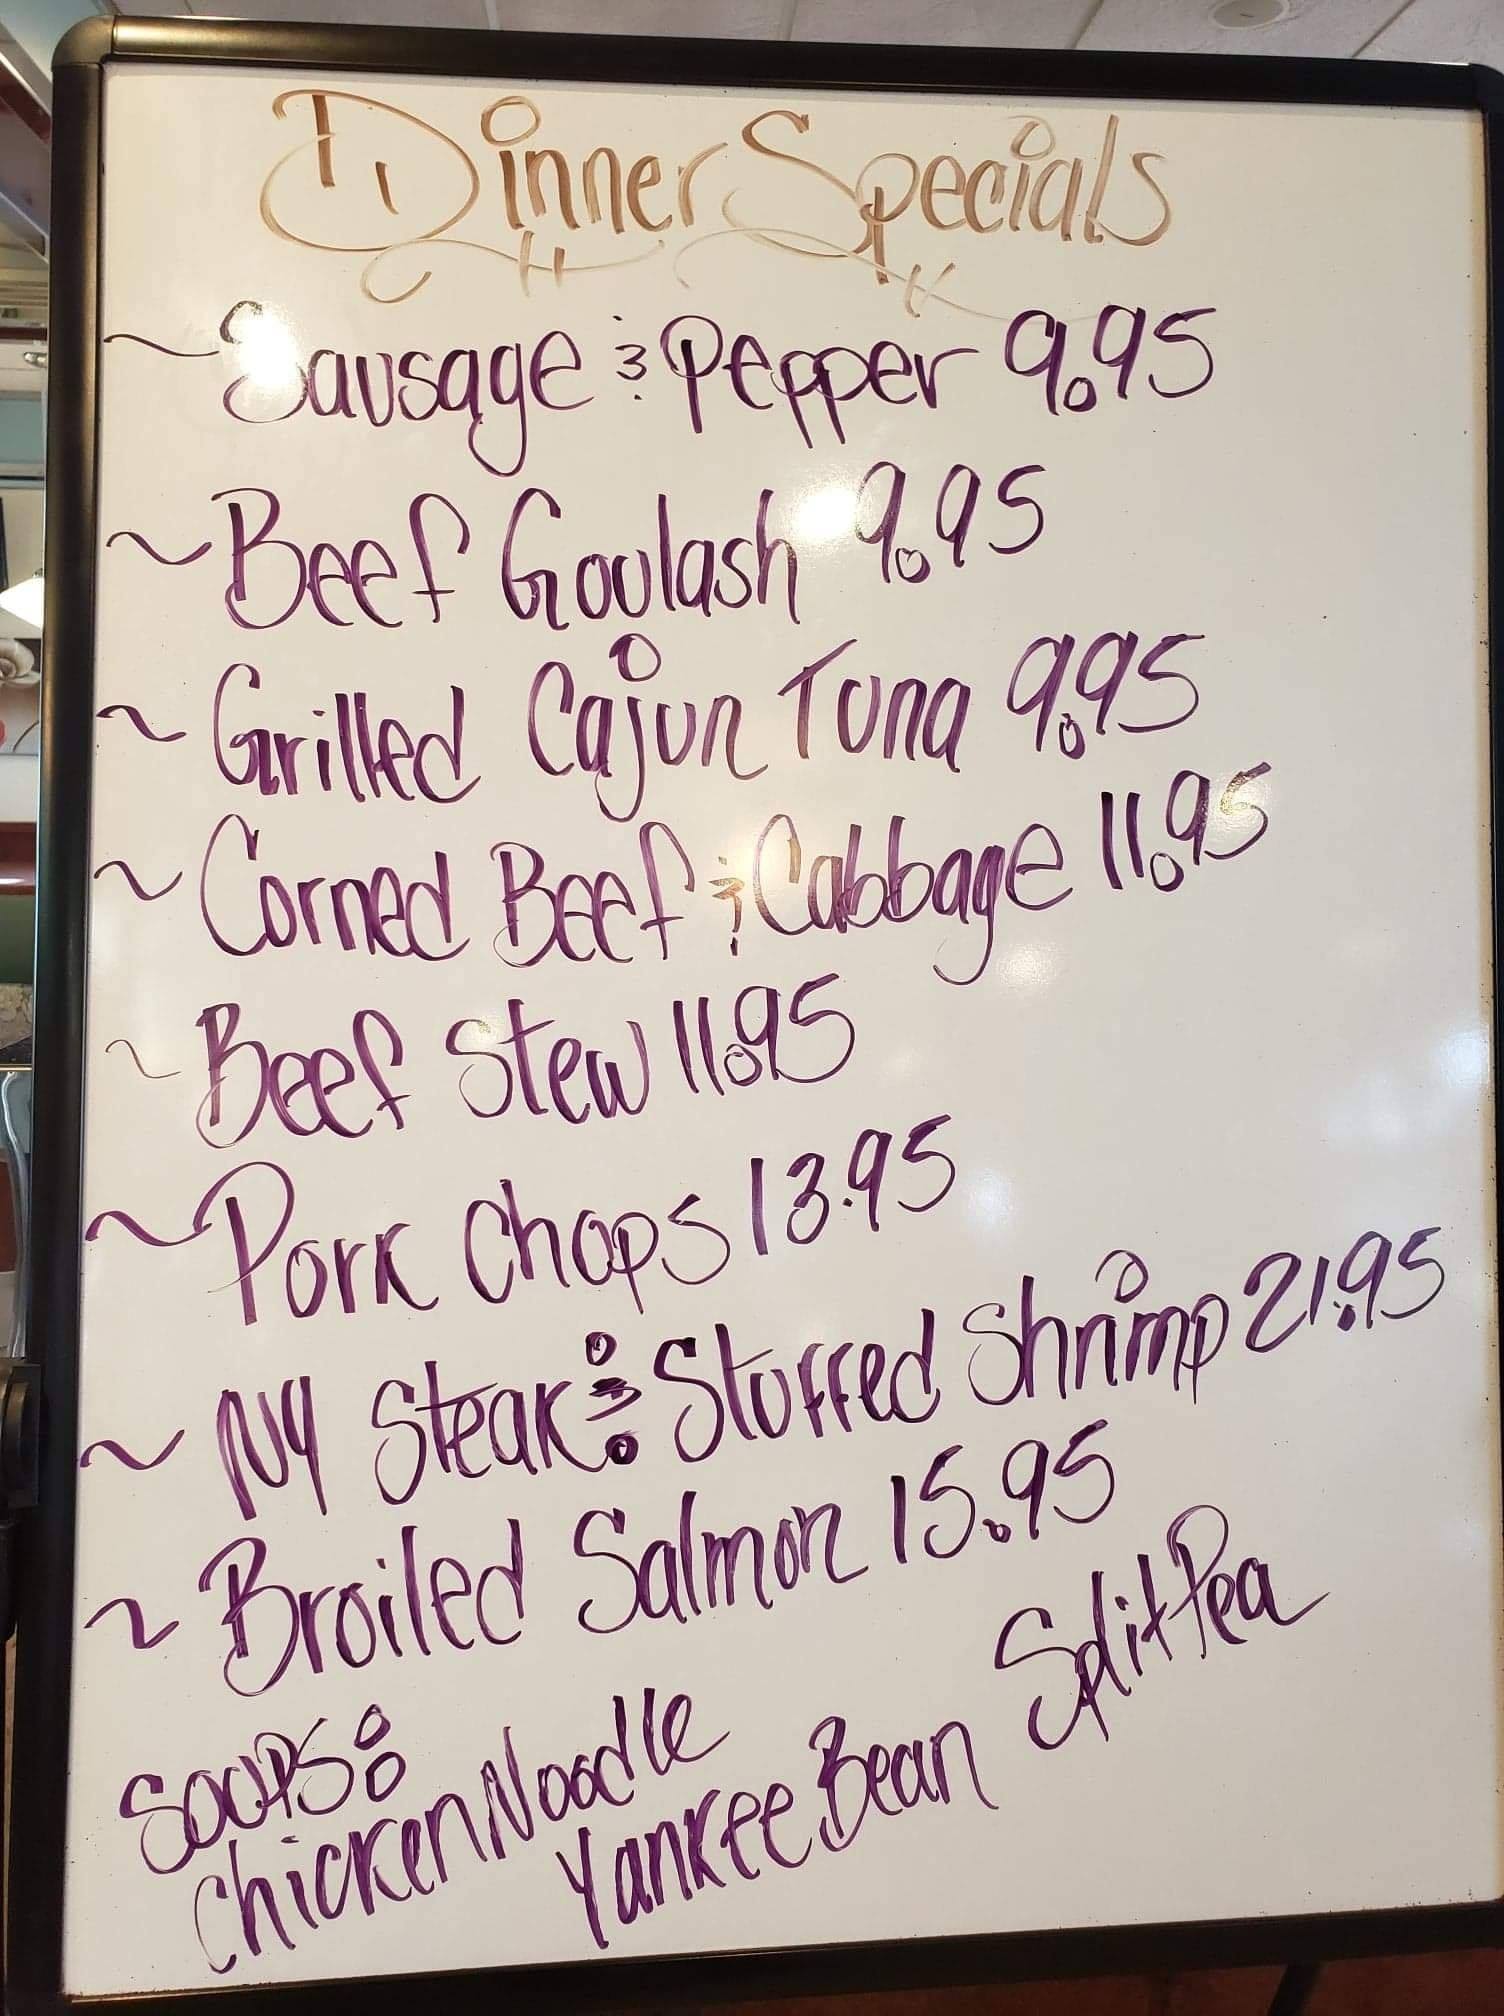 Dinner Specials
~ Sausage & Pepper 9.95
~ Beef Goulash 9.95
~ Grilled Cajun Tuna 9.95
~ Corned Beef & Cabbage 11.95
~ Beef Stew 11.95
~ Pork Chops 13.95
~ NY Steak & Stuffed Shrimp 21.95
~ Broiled Salmon 15.95
SOUPS:
Chicken Noodle
Yankee Bean Split Pea